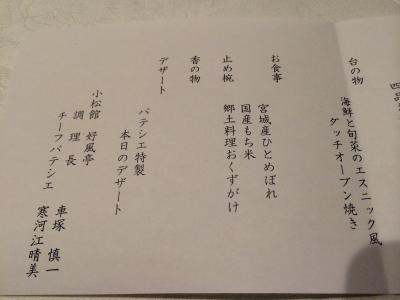 台の物
海鮮と旬菜のエスニック風
ダッチオーブン焼き
お食事
宮城産ひとめぼれ
国産もち米
止め椀
郷土料理おくずがけ
香の物
デザート
パテシエ特製
本日のデザート
小松館 好風亭
調理長 車塚 慎一
チーフパテシエ 寒河江晴美